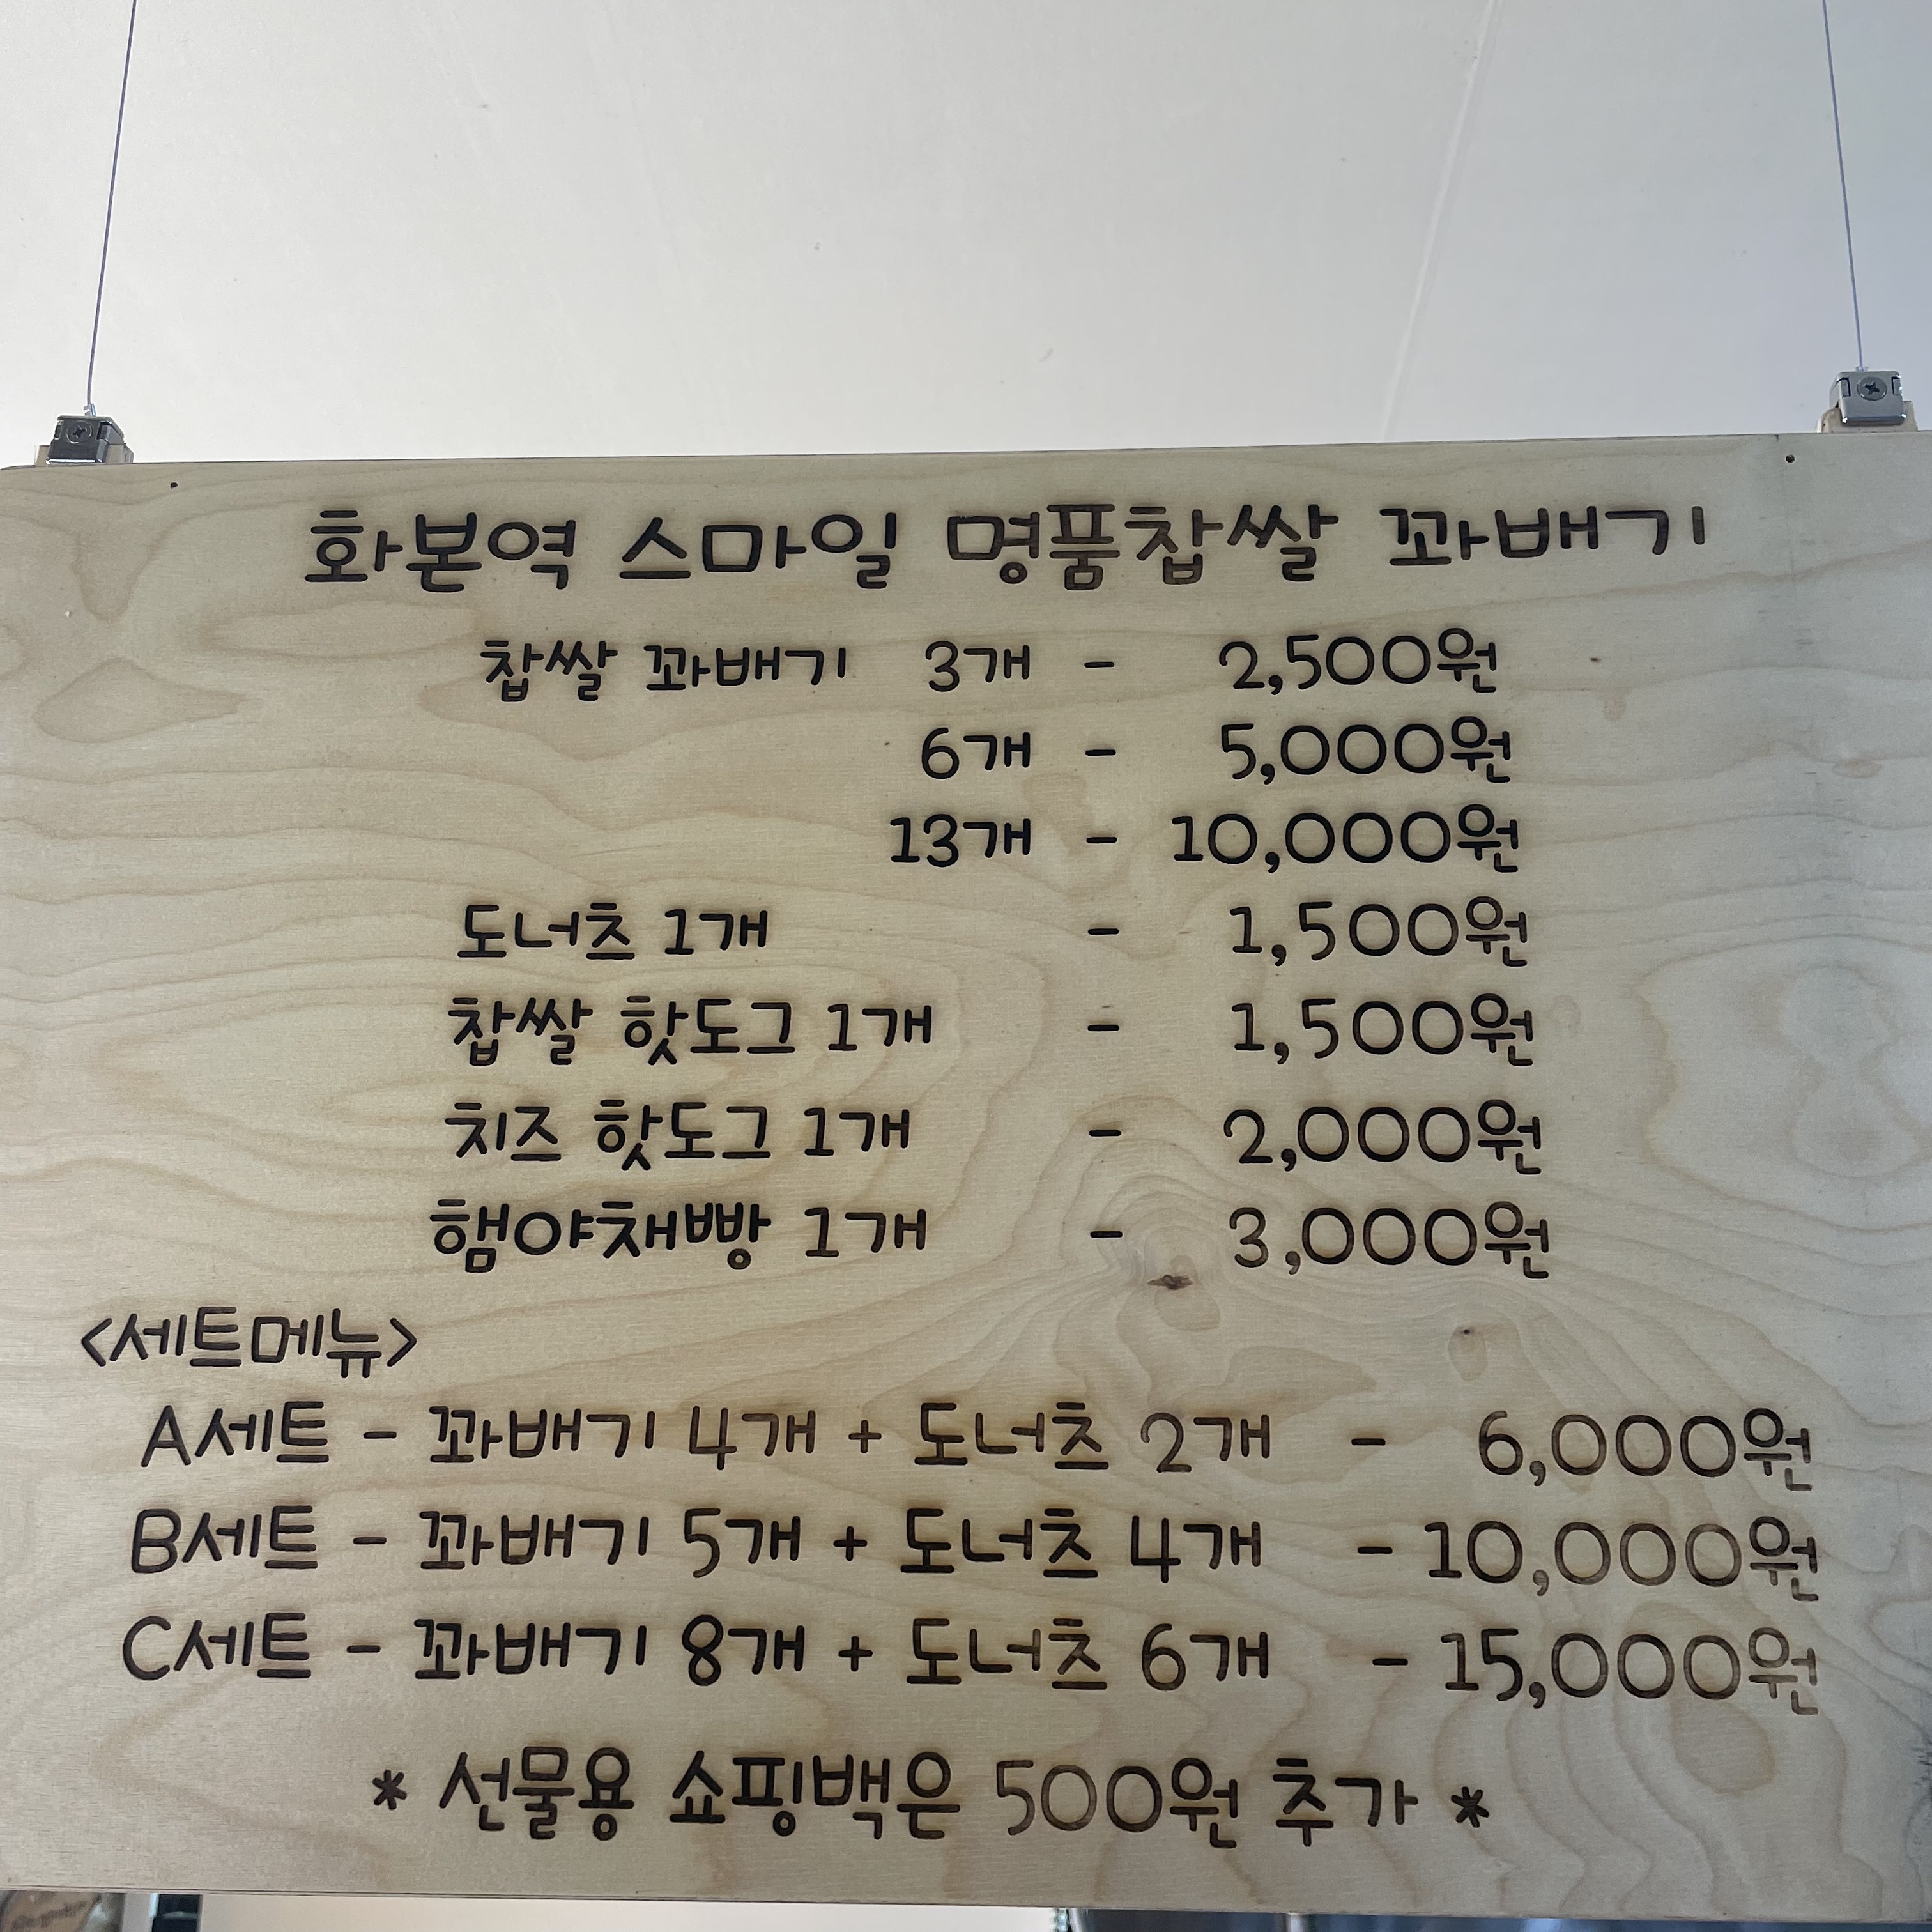 화본역 스마일 명품찹쌀 꽈배기
찹쌀 꽈배기 3개 - 2,500원
6개 - 5,000원
13개 - 10,000원
도너츠 1개 - 1,500원
찹쌀 핫도그 1개 - 1,500원
치즈 핫도그 1개 - 2,000원
햄야채빵 1개 - 3,000원
<세트메뉴>
A세트 - 꽈배기 4개 + 도너츠 2개 - 6,000원
B세트 - 꽈배기 5개 + 도너츠 4개 - 10,000원
C세트 - 꽈배기 8개 + 도너츠 6개 - 15,000원
* 선물용 쇼핑백은 500원 추가 *